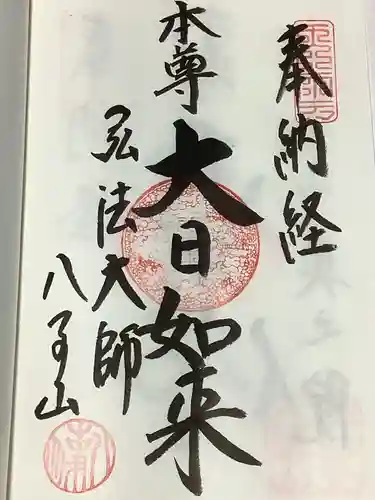 奉納経
本尊
大日如来
弘法大師
八事山